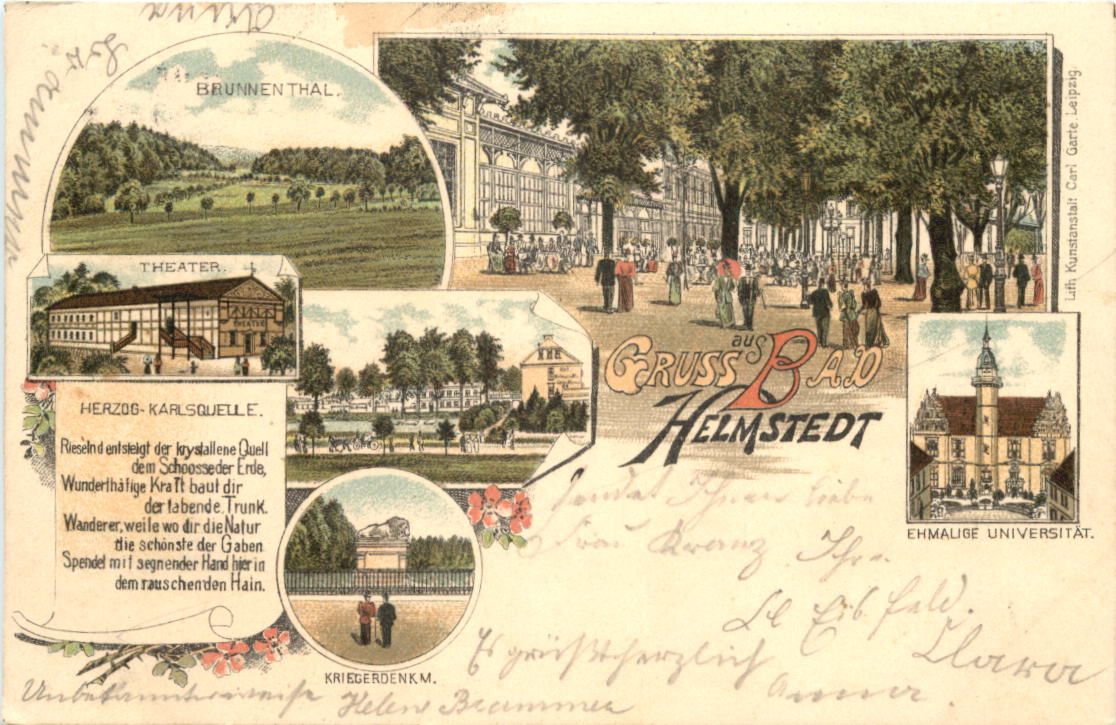 BRUNNENTHAL.
THEATER.
THEATER
HERZOG-KARLSQUELLE.
Rieselnd entsteigt der krystallene Quell
dem Schoosse der Erde,
Wunderthätige Kraft baut dir
der labende Trunk.
Wanderer, weile wo dir die Natur
die schönste der Gaben
Spendet mit segnender Hand hier in
dem rauschenden Hain.
KRIEGERDENKM.
GRUSS aus BAD
HELMSTEDT
EHMALIGE UNIVERSITÄT.
Lith. Kunstanstalt Carl Garte Leipzig.
sendet Ihnen liebe
Frau Kranz Ihre
Es grüßt herzlich
Clara
Anna
Unbekannterweise Helene Brammer